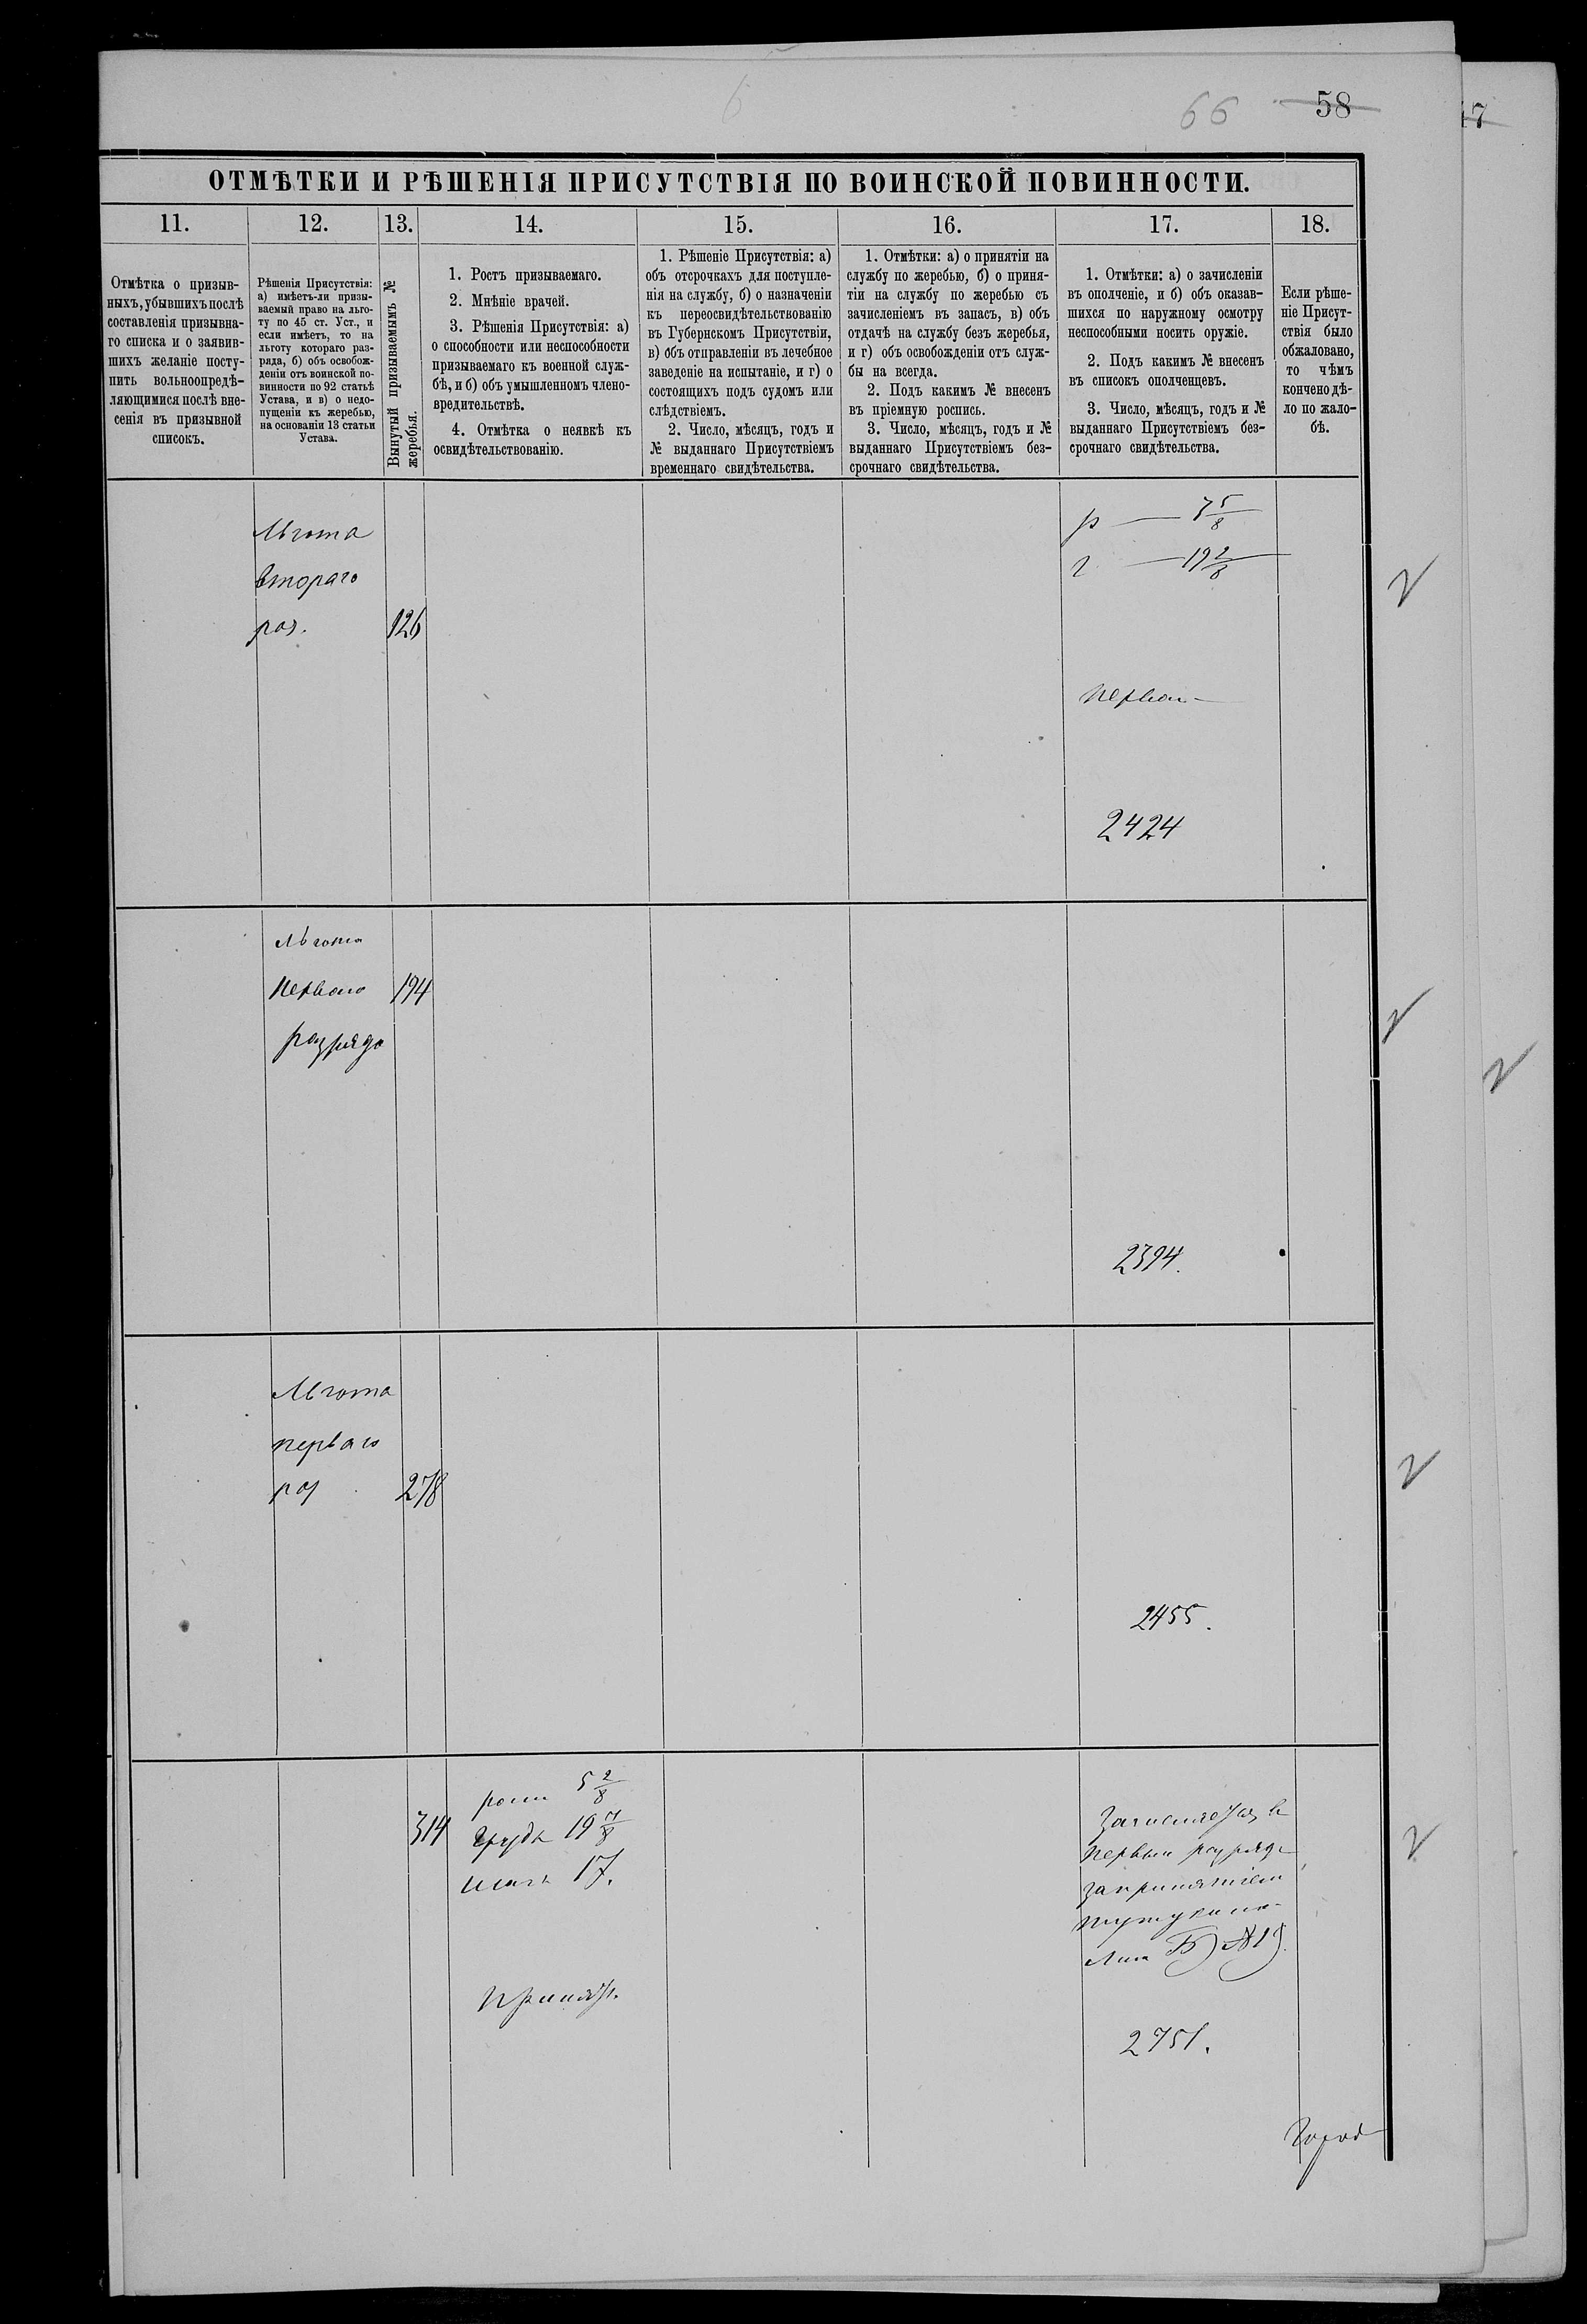 66 58
17
ОТМѢТКИ И РѢШЕНІЯ ПРИСУТСТВІЯ ПО ВОИНСКОЙ ПОВИННОСТИ.
11.
Отмѣтка о призыв-
ныхъ, убывшихъ послѣ
составленія призывна-
го списка и о заявив-
шихъ желаніе посту-
пить вольноопредѣ-
ляющимися послѣ вне-
сенія въ призывной
списокъ.
12.
Рѣшенія Присутствія:
а) имѣетъ-ли призы-
ваемый право на льго-
ту по 45 ст. Уст., и
если имѣетъ, то на
льготу котораго раз-
ряда, б) объ освобож-
деніи отъ воинской по-
винности по 92 статьѣ
Устава, и в) о недо-
пущеніи къ жеребью,
на основаніи 13 статьи
Устава.
13.
Вынутый призываемымъ №
жеребья.
14.
1. Ростъ призываемаго.
2. Мнѣніе врачей.
3. Рѣшенія Присутствія: а)
о способности или неспособности
призываемаго къ военной служ-
бѣ, и б) объ умышленномъ члено-
вредительствѣ.
4. Отмѣтка о неявкѣ къ
освидѣтельствованію.
15.
1. Рѣшеніе Присутствія: а)
объ отсрочкахъ для поступле-
нія на службу, б) о назначеніи
къ переосвидѣтельствованію
въ Губернскомъ Присутствіи,
в) объ отправленіи въ лечебное
заведеніе на испытаніе, и г) о
состоящихъ подъ судомъ или
слѣдствіемъ.
2. Число, мѣсяцъ, годъ и
№ выданнаго Присутствіемъ
временнаго свидѣтельства.
16.
1. Отмѣтки: а) о принятіи на
службу по жеребью, б) о приня-
тіи на службу по жеребью съ
зачисленіемъ въ запасъ, в) объ
отдачѣ на службу безъ жеребья,
и г) объ освобожденіи отъ служ-
бы на всегда.
2. Подъ какимъ № внесенъ
въ пріемную роспись.
3. Число, мѣсяцъ, годъ и №
выданнаго Присутствіемъ без-
срочнаго свидѣтельства.
17.
1. Отмѣтки: а) о зачисленіи
въ ополченіе, и б) объ оказав-
шихся по наружному осмотру
неспособными носить оружіе.
2. Подъ какимъ № внесенъ
въ списокъ ополченцевъ.
3. Число, мѣсяцъ, годъ и №
выданнаго Присутствіемъ без-
срочнаго свидѣтельства.
18.
Если рѣше-
ніе Присут-
ствія было
обжаловано,
то чѣмъ
кончено дѣ-
ло по жало-
бѣ.
Льгота
втораго
раз.
126
р — 3 5/8
г — 19 2/8
2424
Льгота
перваго
разряда
194
2394.
Льгота
перваго
раз
278
2455.
314
ростъ 5 2/8
грудь 19 7/8
17.
Принятъ.
Зачисляется въ
первый разрядъ
за принятіемъ
Б) №19.
2751.